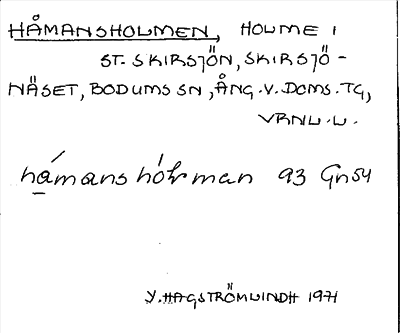 HÅMANSHOLMEN, HOLME I
ST. SKIRSJÖN, SKIRSJÖ-
NÄSET, BODUMS SN, ÅNG. V. DOMS. TG,
VRNL. L.
93 Gn54
Y. HAGSTRÖMLINDH 1971